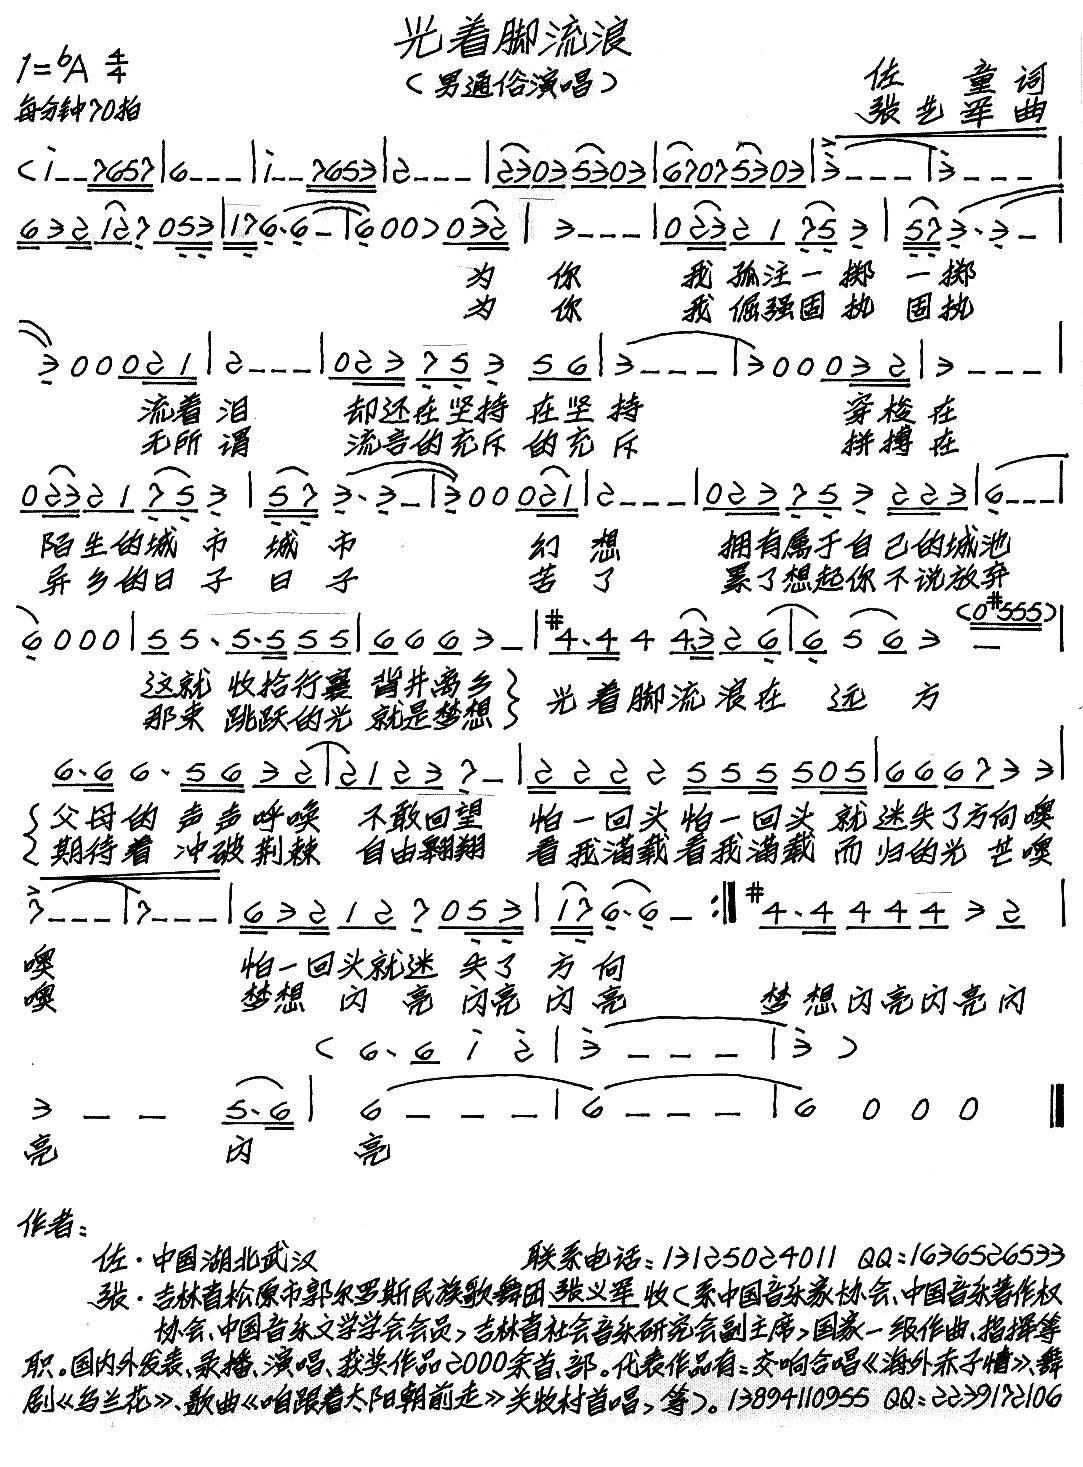 光着脚流浪
1=♭A 4/4 （男通俗演唱） 佐 童 词
每分钟70拍 张艺军 曲
(i̇--7657|6---|i̇--7653|2---|23035303|67075303|3---|3---|
632127053|176·66-|600)032|3---|0232175 3|573·3-|
为 你 我孤注一掷 一掷
为 你 我倔强固执 固执
300021|2---|02375 3 56|3---|300032|3---|
流着泪 却还在坚持 在坚持 穿梭在
无所谓 流言的充斥 的充斥 拼搏在
0232175 3|573·3-|300021|2---|02375 3 223|6---|
陌生的城市 城市 幻想 拥有属于自己的城池
异乡的日子 日子 苦了 累了想起你不说放弃
6000|55·5·555|6663-|#4·44 43 26|6563 - (0#555)|
这就 收拾行囊 背井离乡 } 光着脚流浪在 远 方
那束 跳跃的光 就是梦想
6·66·5632|21237-|2222 555505|666733|
父母的 声声呼唤 不敢回望 怕一回头怕一回头 就迷失了方向噢
期待着 冲破荆棘 自由翱翔 看我满载看我满载 而归的光芒噢
7---|7---|632127053|176·6-:‖#4·444432|
噢 怕一回头就迷 失了 方向
噢 梦想 闪亮 闪亮 闪亮 梦想闪亮闪亮闪
(6·6i̇2̇|3̇---|3̇)
3--5·6|6---|6---|6000‖
亮 闪 亮
作者：
佐·中国湖北武汉 联系电话：13125024011 QQ：1636526533
张·吉林省松原市郭尔罗斯民族歌舞团张义军收（系中国音乐家协会、中国音乐著作权
协会、中国音乐文学学会会员，吉林省社会音乐研究会副主席，国家一级作曲、指挥等
职。国内外发表、录播、演唱、获奖作品2000余首、部。代表作品有：交响合唱《海外赤子情》、舞
剧《乌兰花》、歌曲《咱跟着太阳朝前走》关牧村首唱，等）。13894110955 QQ：2239172106